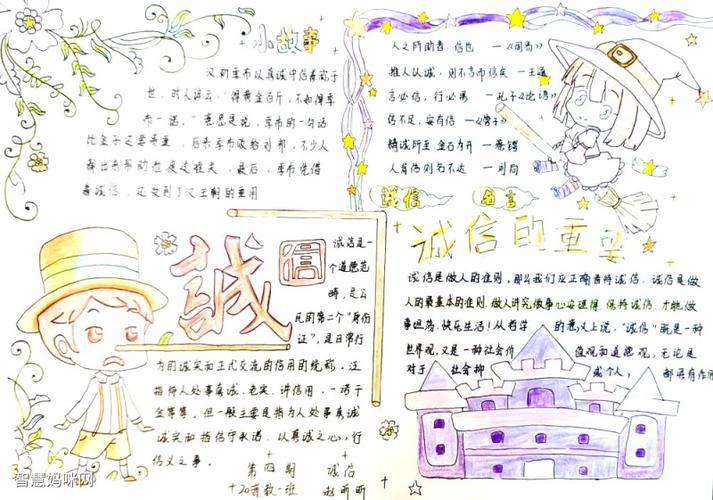 小故事
汉初季布以真诚守信著称于
世，时人谚云：“得黄金百斤，不如得季
布一诺。”意思是说，季布的一句话
比金子还要贵重，后来季布被捕
最后，季布凭借
着诚信，还受到了汉王朝的重用
人之所助者，信也 —《周易》
推人以诚，则不言而信矣 —王通
言必信，行必果 —孔子《论语》
信不足，安有信 —《管子》
精诚所至 金石为开 —
人背信则名不达 —刘向
诚信 名言
誠信
诚信是一
个道德范
畴，是公
民的第二个“身份
证”，是日常行
为的诚实和正式交流的信用的统称。泛
指待人处事真诚、老实、讲信用，一诺千
金等等。但一般主要是指为人处事真诚
诚实和指信守承诺。以真诚之心，行
信义之事。
第四期 诚信
诚信的重要
诚信是做人的准则，那么我们应正确看待诚信。诚信是做
人的最基本的准则，做人讲究做事心安理得，保持诚信，才能做
事坦荡，快乐生活！从哲学的意义上说，“诚信”既是一种
世界观，又是一种社会价值观和道德观，无论是
对于社会抑或个人，都具有作用
智慧妈咪网